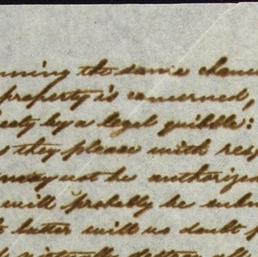 the same chance
property is concerned,
by a legal quibble:
they please with
may not be authorized
will probably be
latter will no doubt